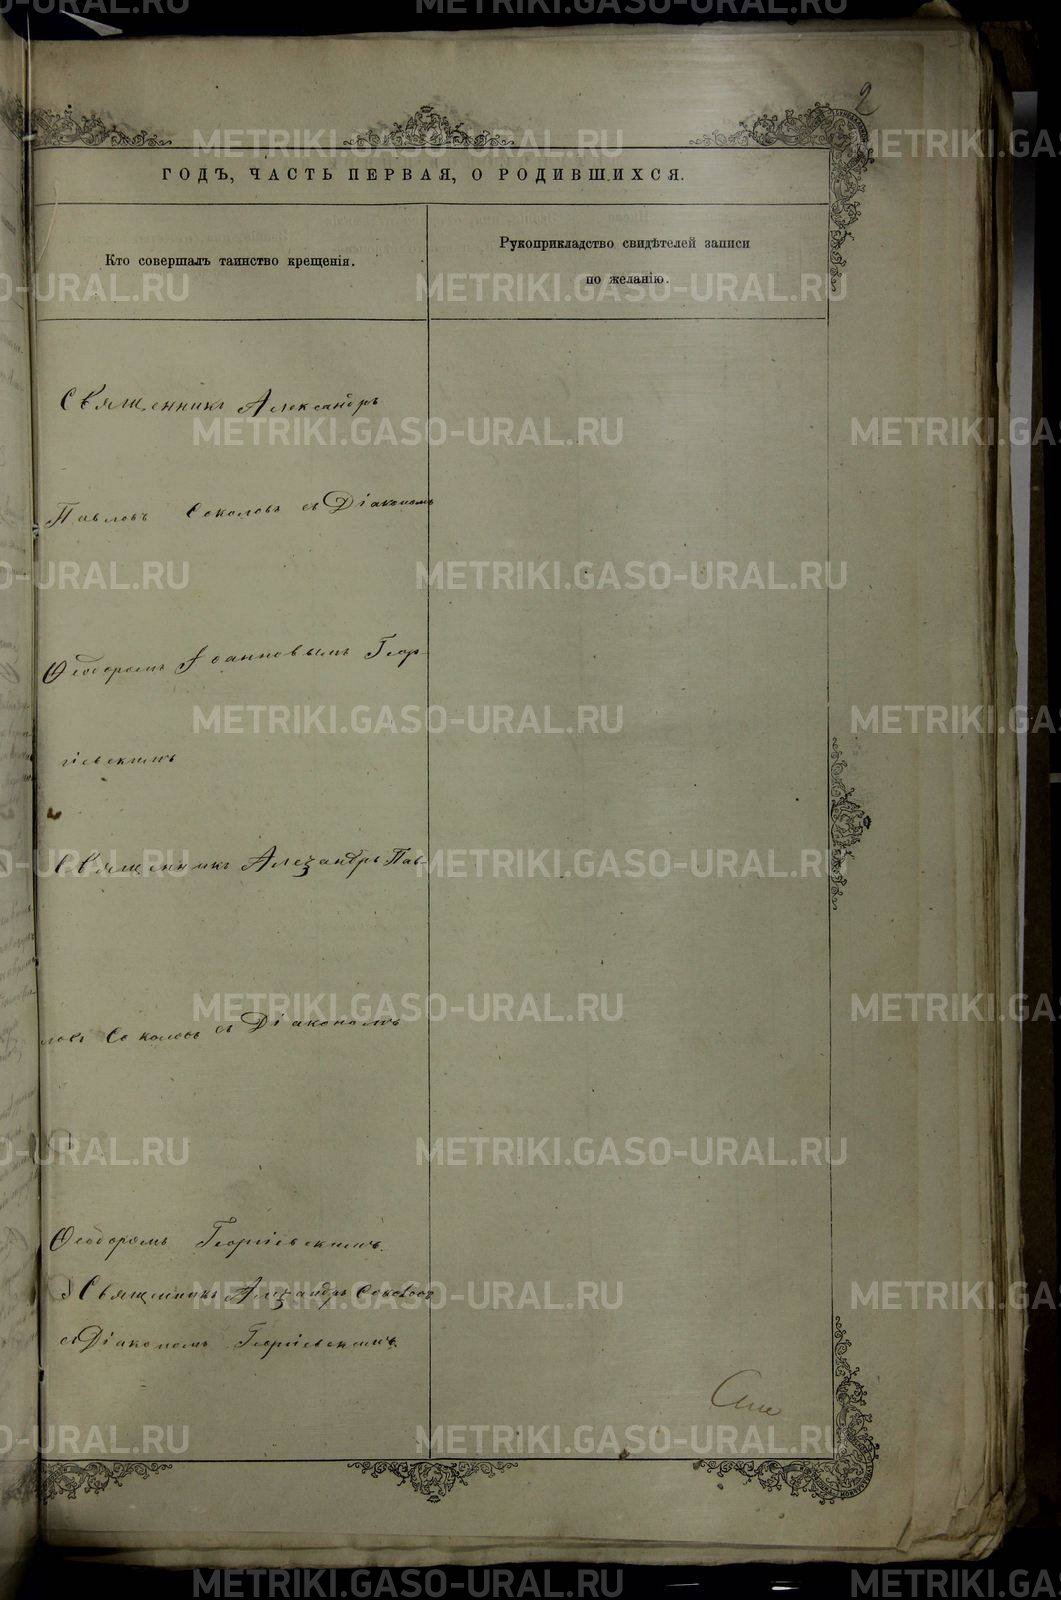 2
ГОДЪ, ЧАСТЬ ПЕРВАЯ, О РОДИВШИХСЯ.
Кто совершалъ таинство крещенія.
Рукоприкладство свидѣтелей записи
по желанію.
Священникъ Александръ
Павловъ Соколовъ съ Діакономъ
Ѳеодоромъ Іоанновымъ Геор-
гіевскимъ
Священникъ Алезандръ Пав-
ловъ Соколовъ съ Діакономъ
Ѳеодоромъ Георгіевскимъ.
Священникъ Алезандръ Соколовъ
съ Діакономъ Георгіевскимъ.
METRIKI.GASO-URAL.RU